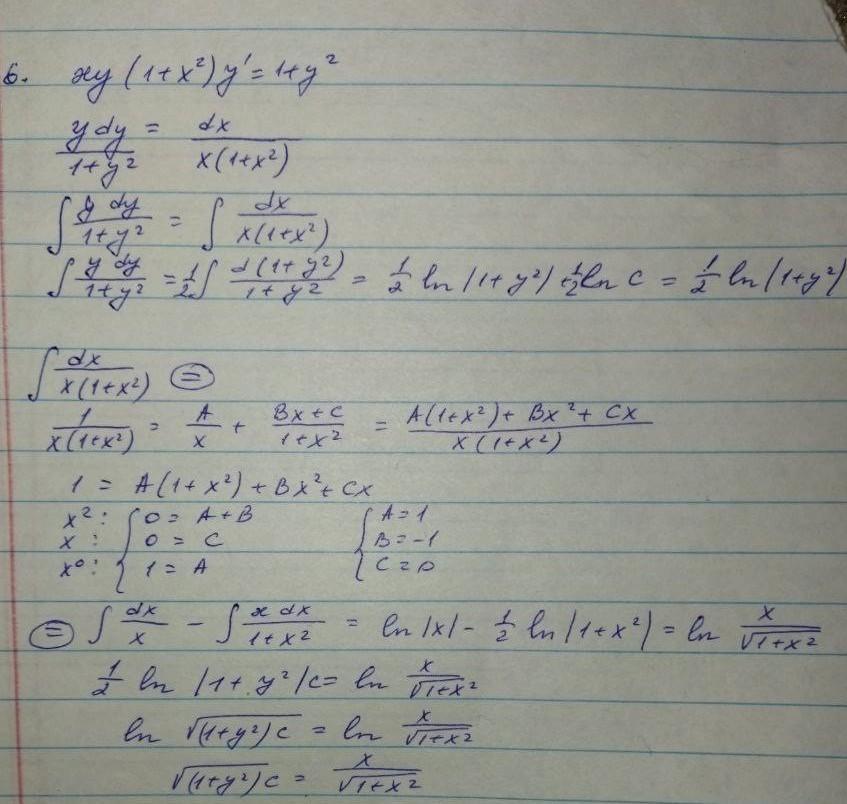 6. xy(1+x²)y' = 1+y²
y dy/(1+y²) = dx/(x(1+x²))
∫ y dy/(1+y²) = ∫ dx/(x(1+x²))
∫ y dy/(1+y²) = 1/2 ∫ d(1+y²)/(1+y²) = 1/2 ln|1+y²| + 1/2 ln C = 1/2 ln(1+y²)
∫ dx/(x(1+x²)) ⊜
1/(x(1+x²)) = A/x + (Bx+C)/(1+x²) = (A(1+x²) + Bx² + Cx)/(x(1+x²))
1 = A(1+x²) + Bx² + Cx
x²: { 0 = A+B { A = 1
x: { 0 = C { B = -1
x⁰: { 1 = A { C = 0
⊜ ∫ dx/x - ∫ x dx/(1+x²) = ln|x| - 1/2 ln|1+x²| = ln x/√(1+x²)
1/2 ln |1+y²|c = ln x/√(1+x²)
ln √((1+y²)c) = ln x/√(1+x²)
√((1+y²)c) = x/√(1+x²)